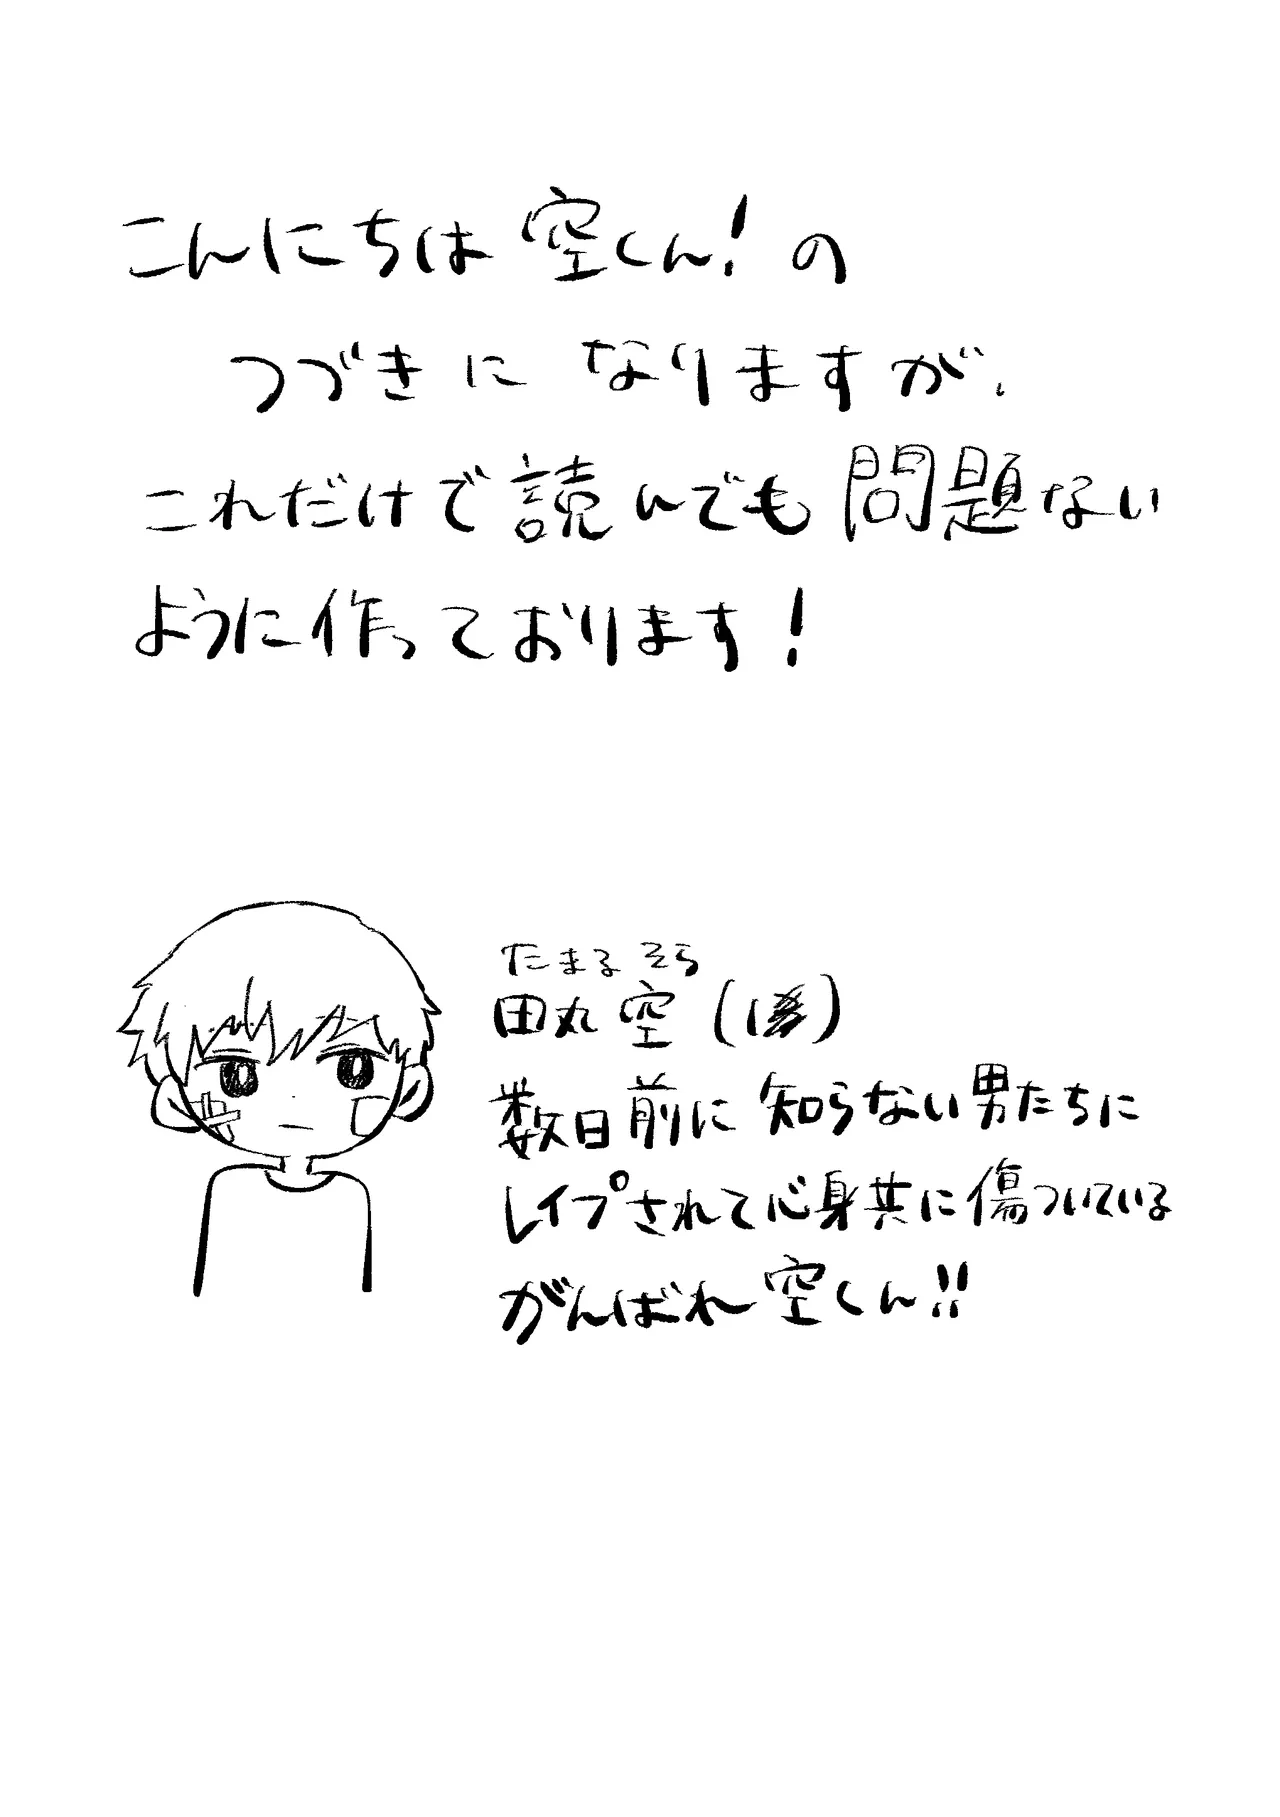 こんにちは空くん!の
つづきになりますが、
これだけで読んでも問題ない
ように作っております!
たまる そら
田丸 空 (1
数日前に知らない男たちに
レイプされて心身共に傷ついている
がんばれ空くん!!